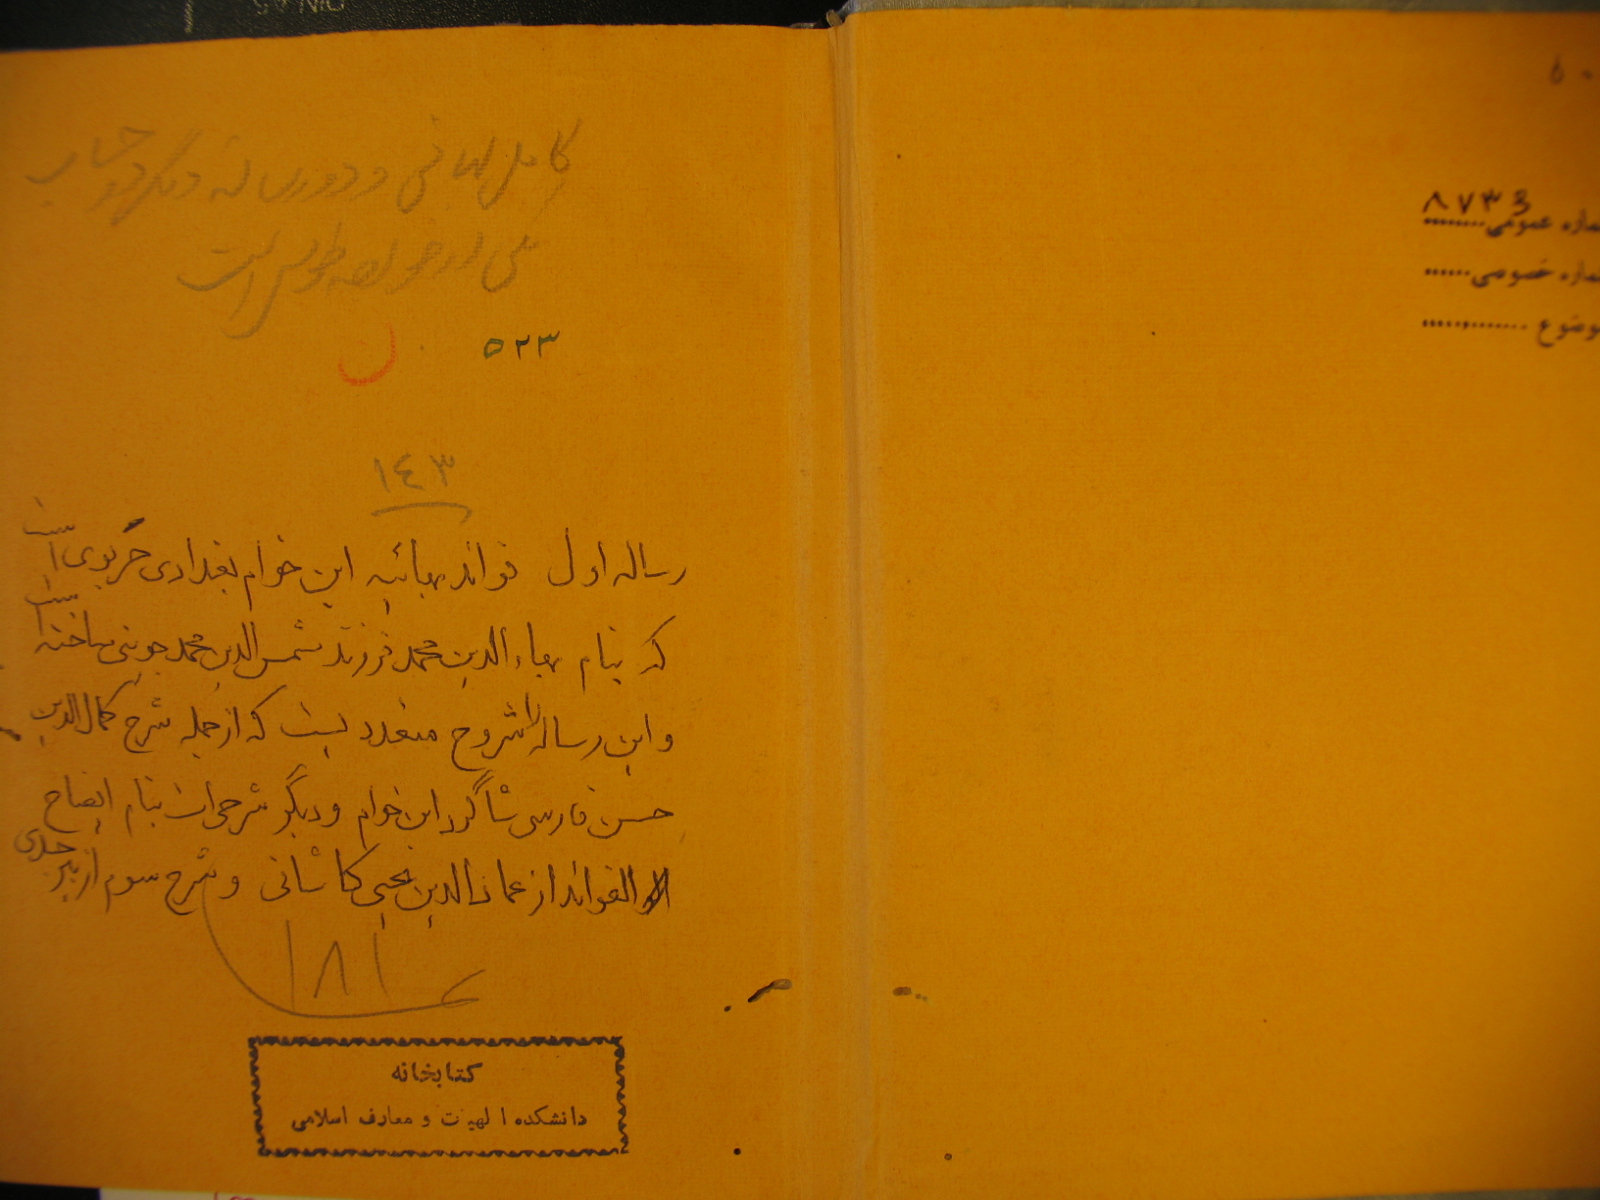 کامل بهائی و دو رساله دیگر در حساب
یکی از خواجه طوسی است
۵۲۳
۱٤۳
رساله اول فوائد بهائیه ابن خوام بغدادی حربوی است
که بنام بهاءالدین محمد فرزند شمس الدین محمد جوینی ساخته است
و این رساله را شروح متعدد یست که از جمله شرح کمال الدین
حسن فارسی شاگرد ابن خوام و دیگر شرحی است بنام ایضاح
الفوائد از عمادالدین یحیی کاشانی و شرح سوم از بیرجندی
۱۸۱
کتابخانه
دانشکده الهیات و معارف اسلامی
شماره عمومی
شماره خصومی
موضوع